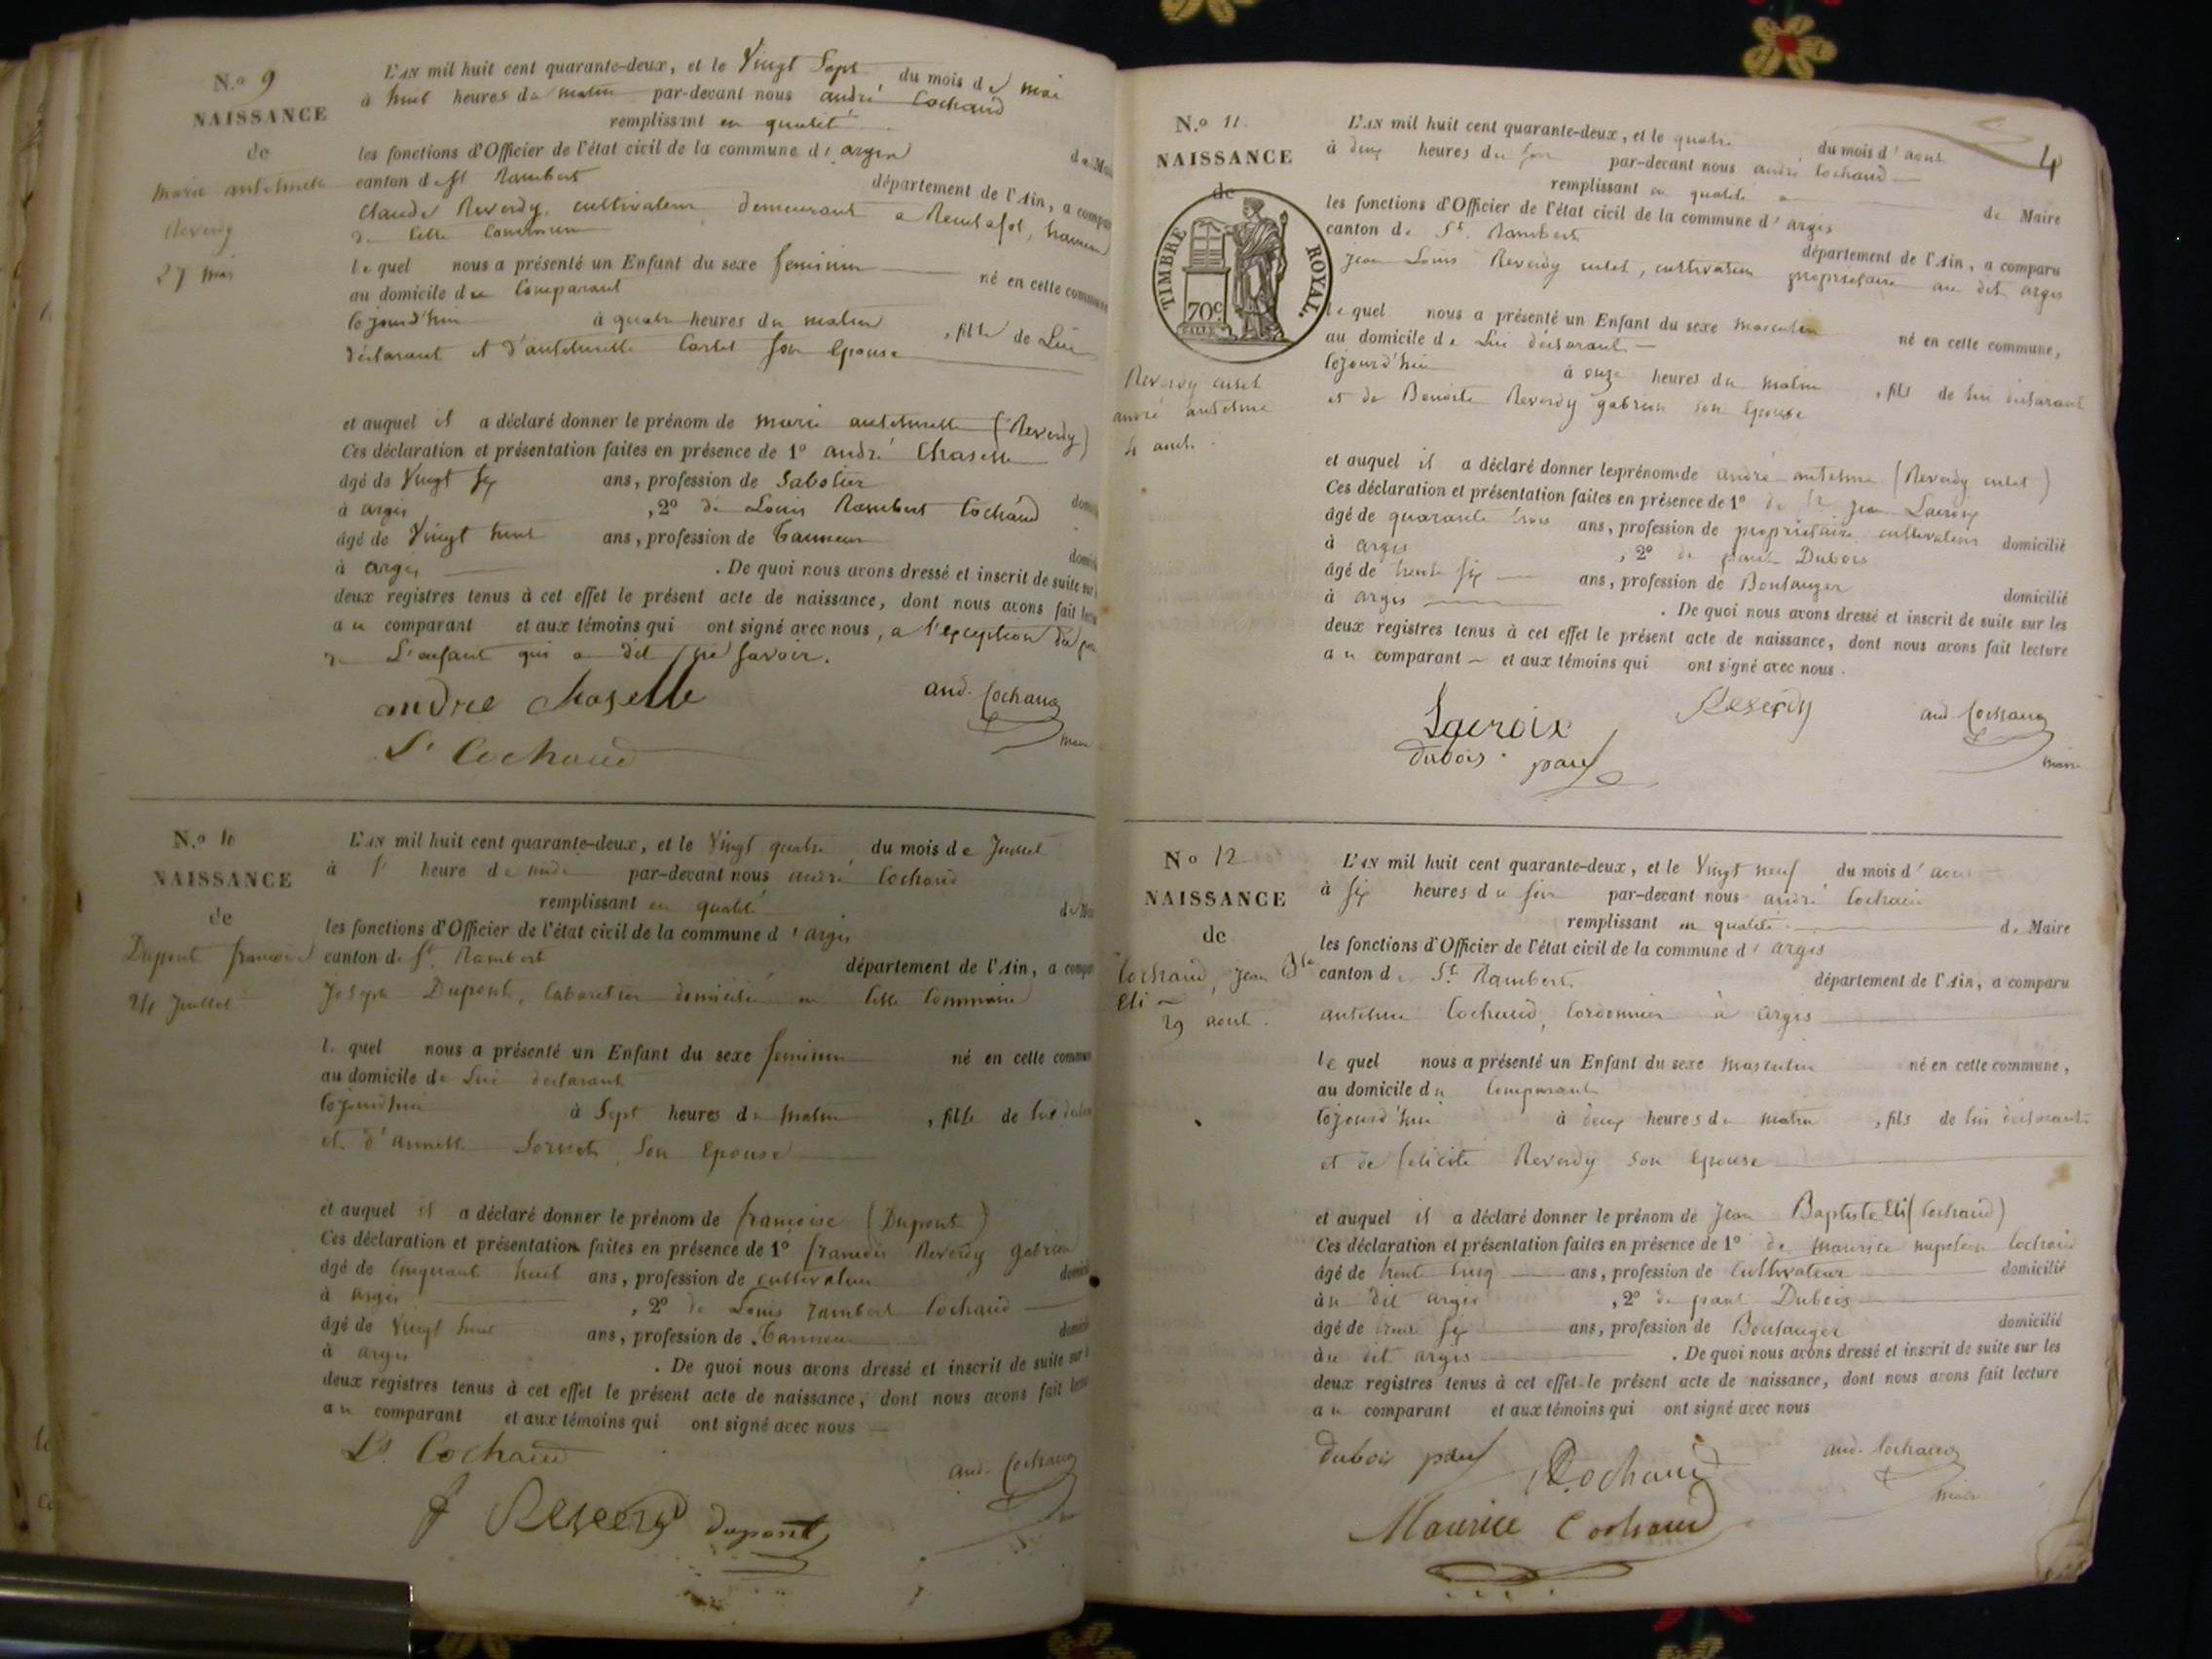 N.o 9
NAISSANCE
de
marie anthelmette
Reverdy
27 mai
L'AN mil huit cent quarante-deux, et le Vingt Sept du mois de mai
à huit heures du matin par-devant nous andré Cochaud
remplissant en qualité
les fonctions d'Officier de l'état civil de la commune d'argis
canton de St Rambert département de l'Ain, a
Claude Reverdy, cultivateur demeurant a
de cette Commune
lequel nous a présenté un Enfant du sexe feminin né en cette
au domicile du Comparant
cejourd'hui à quatre heures du matin, fille de Lui
déclarant et d'anthelmette son Epouse
et auquel il a déclaré donner le prénom de marie anthelmette (Reverdy)
Ces déclaration et présentation faites en présence de 1o andré Chaselle
âgé de Vingt Six ans, profession de Sabotier
à argis, 2o de Louis Rambert Cochaud
âgé de Vingt huit ans, profession de Tanneur
à argis. De quoi nous avons dressé et inscrit de suite sur
deux registres tenus à cet effet le présent acte de naissance, dont nous avons fait
au comparant et aux témoins qui ont signé avec nous, a l'exception du
de L'enfant qui a dit ne Savoir.
andree chaselle and. Cochaud
Ls Cochaud maire
N.o 10
NAISSANCE
de
Dupont francoise
24 Juillet
L'AN mil huit cent quarante-deux, et le Vingt quatre du mois de Juillet
à 1 heure de par-devant nous andré Cochaud
remplissant en qualité
les fonctions d'Officier de l'état civil de la commune d'argis
canton de St. Rambert département de l'Ain, a
Joseph Dupont, domicilié en Cette Commune
lequel nous a présenté un Enfant du sexe feminin né en cette
au domicile de Lui déclarant
cejourd'hui à Sept heures du matin, fille de lui
et d'annette Son Epouse
et auquel il a déclaré donner le prénom de françoise (Dupont)
Ces déclaration et présentation faites en présence de 1o francois Reverdy
âgé de Cinquante huit ans, profession de cultivateur
à argis, 2o de Louis rambert Cochaud
âgé de Vingt huit ans, profession de Tanneur
à argis. De quoi nous avons dressé et inscrit de suite sur
deux registres tenus à cet effet le présent acte de naissance, dont nous avons fait
au comparant et aux témoins qui ont signé avec nous
Ls Cochaud and. Cochaud
f Reverdy dupont
4
N.o 11.
NAISSANCE
de
TIMBRE ROYAL.
70c
Reverdy culet
andré anthelme
4 aout.
L'AN mil huit cent quarante-deux, et le quatre du mois d'aout
à deux heures du soir par-devant nous andré Cochaud
remplissant en qualité de Maire
les fonctions d'Officier de l'état civil de la commune d'argis
canton de St. Rambert département de l'Ain, a comparu
Jean Louis Reverdy culet, cultivateur propriétaire au dit argis
lequel nous a présenté un Enfant du sexe masculin né en cette commune,
au domicile de Lui déclarant
cejourd'hui à onze heures du matin, fils de lui déclarant
et de Benoite Reverdy son Epouse
et auquel il a déclaré donner les prénoms de andré anthelme (Reverdy culet)
Ces déclaration et présentation faites en présence de 1o de Sr Jean Lacroix
âgé de quarante trois ans, profession de propriétaire cultivateur domicilié
à argis, 2o de paul Dubois
âgé de trente six ans, profession de Boulanger domicilié
à argis. De quoi nous avons dressé et inscrit de suite sur les
deux registres tenus à cet effet le présent acte de naissance, dont nous avons fait lecture
au comparant et aux témoins qui ont signé avec nous.
Lacroix Reverdy and. Cochaud
dubois paul maire
No 12
NAISSANCE
de
Cochaud, jean Bte
Eli
29 aout.
L'AN mil huit cent quarante-deux, et le Vingt neuf du mois d'aout
à six heures du soir par-devant nous andré Cochaud
remplissant en qualité de Maire
les fonctions d'Officier de l'état civil de la commune d'argis
canton de St. Rambert département de l'Ain, a comparu
anthelme Cochaud, Cordonnier à argis
lequel nous a présenté un Enfant du sexe masculin né en cette commune,
au domicile du Comparant
cejourd'hui à deux heures du matin, fils de lui déclarant
et de félicité Reverdy son Epouse
et auquel il a déclaré donner le prénom de Jean Baptiste Eli (Cochaud)
Ces déclaration et présentation faites en présence de 1o de maurice napoléon Cochaud
âgé de trente cinq ans, profession de Cultivateur domicilié
au dit argis, 2o de paul Dubois
âgé de trente six ans, profession de Boulanger domicilié
au dit argis. De quoi nous avons dressé et inscrit de suite sur les
deux registres tenus à cet effet le présent acte de naissance, dont nous avons fait lecture
au comparant et aux témoins qui ont signé avec nous
dubois paul Cochaud and. Cochaud
Maurice Cochaud maire